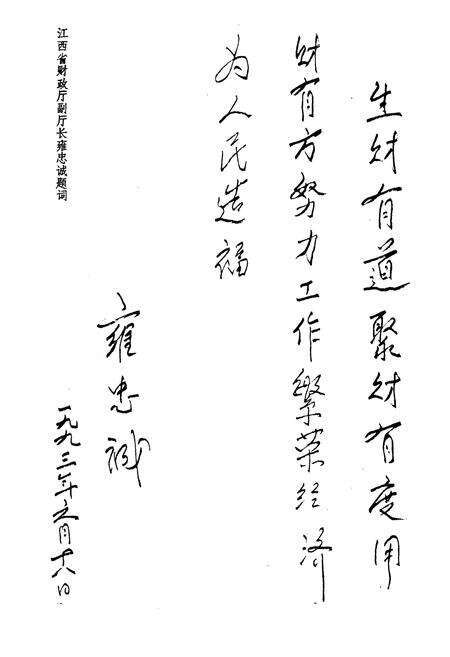 生财有道聚财有度用
财有方努力工作繁荣经济
为人民造福
雍忠诚
一九九三年六月十八日
江西省财政厅副厅长雍忠诚题词